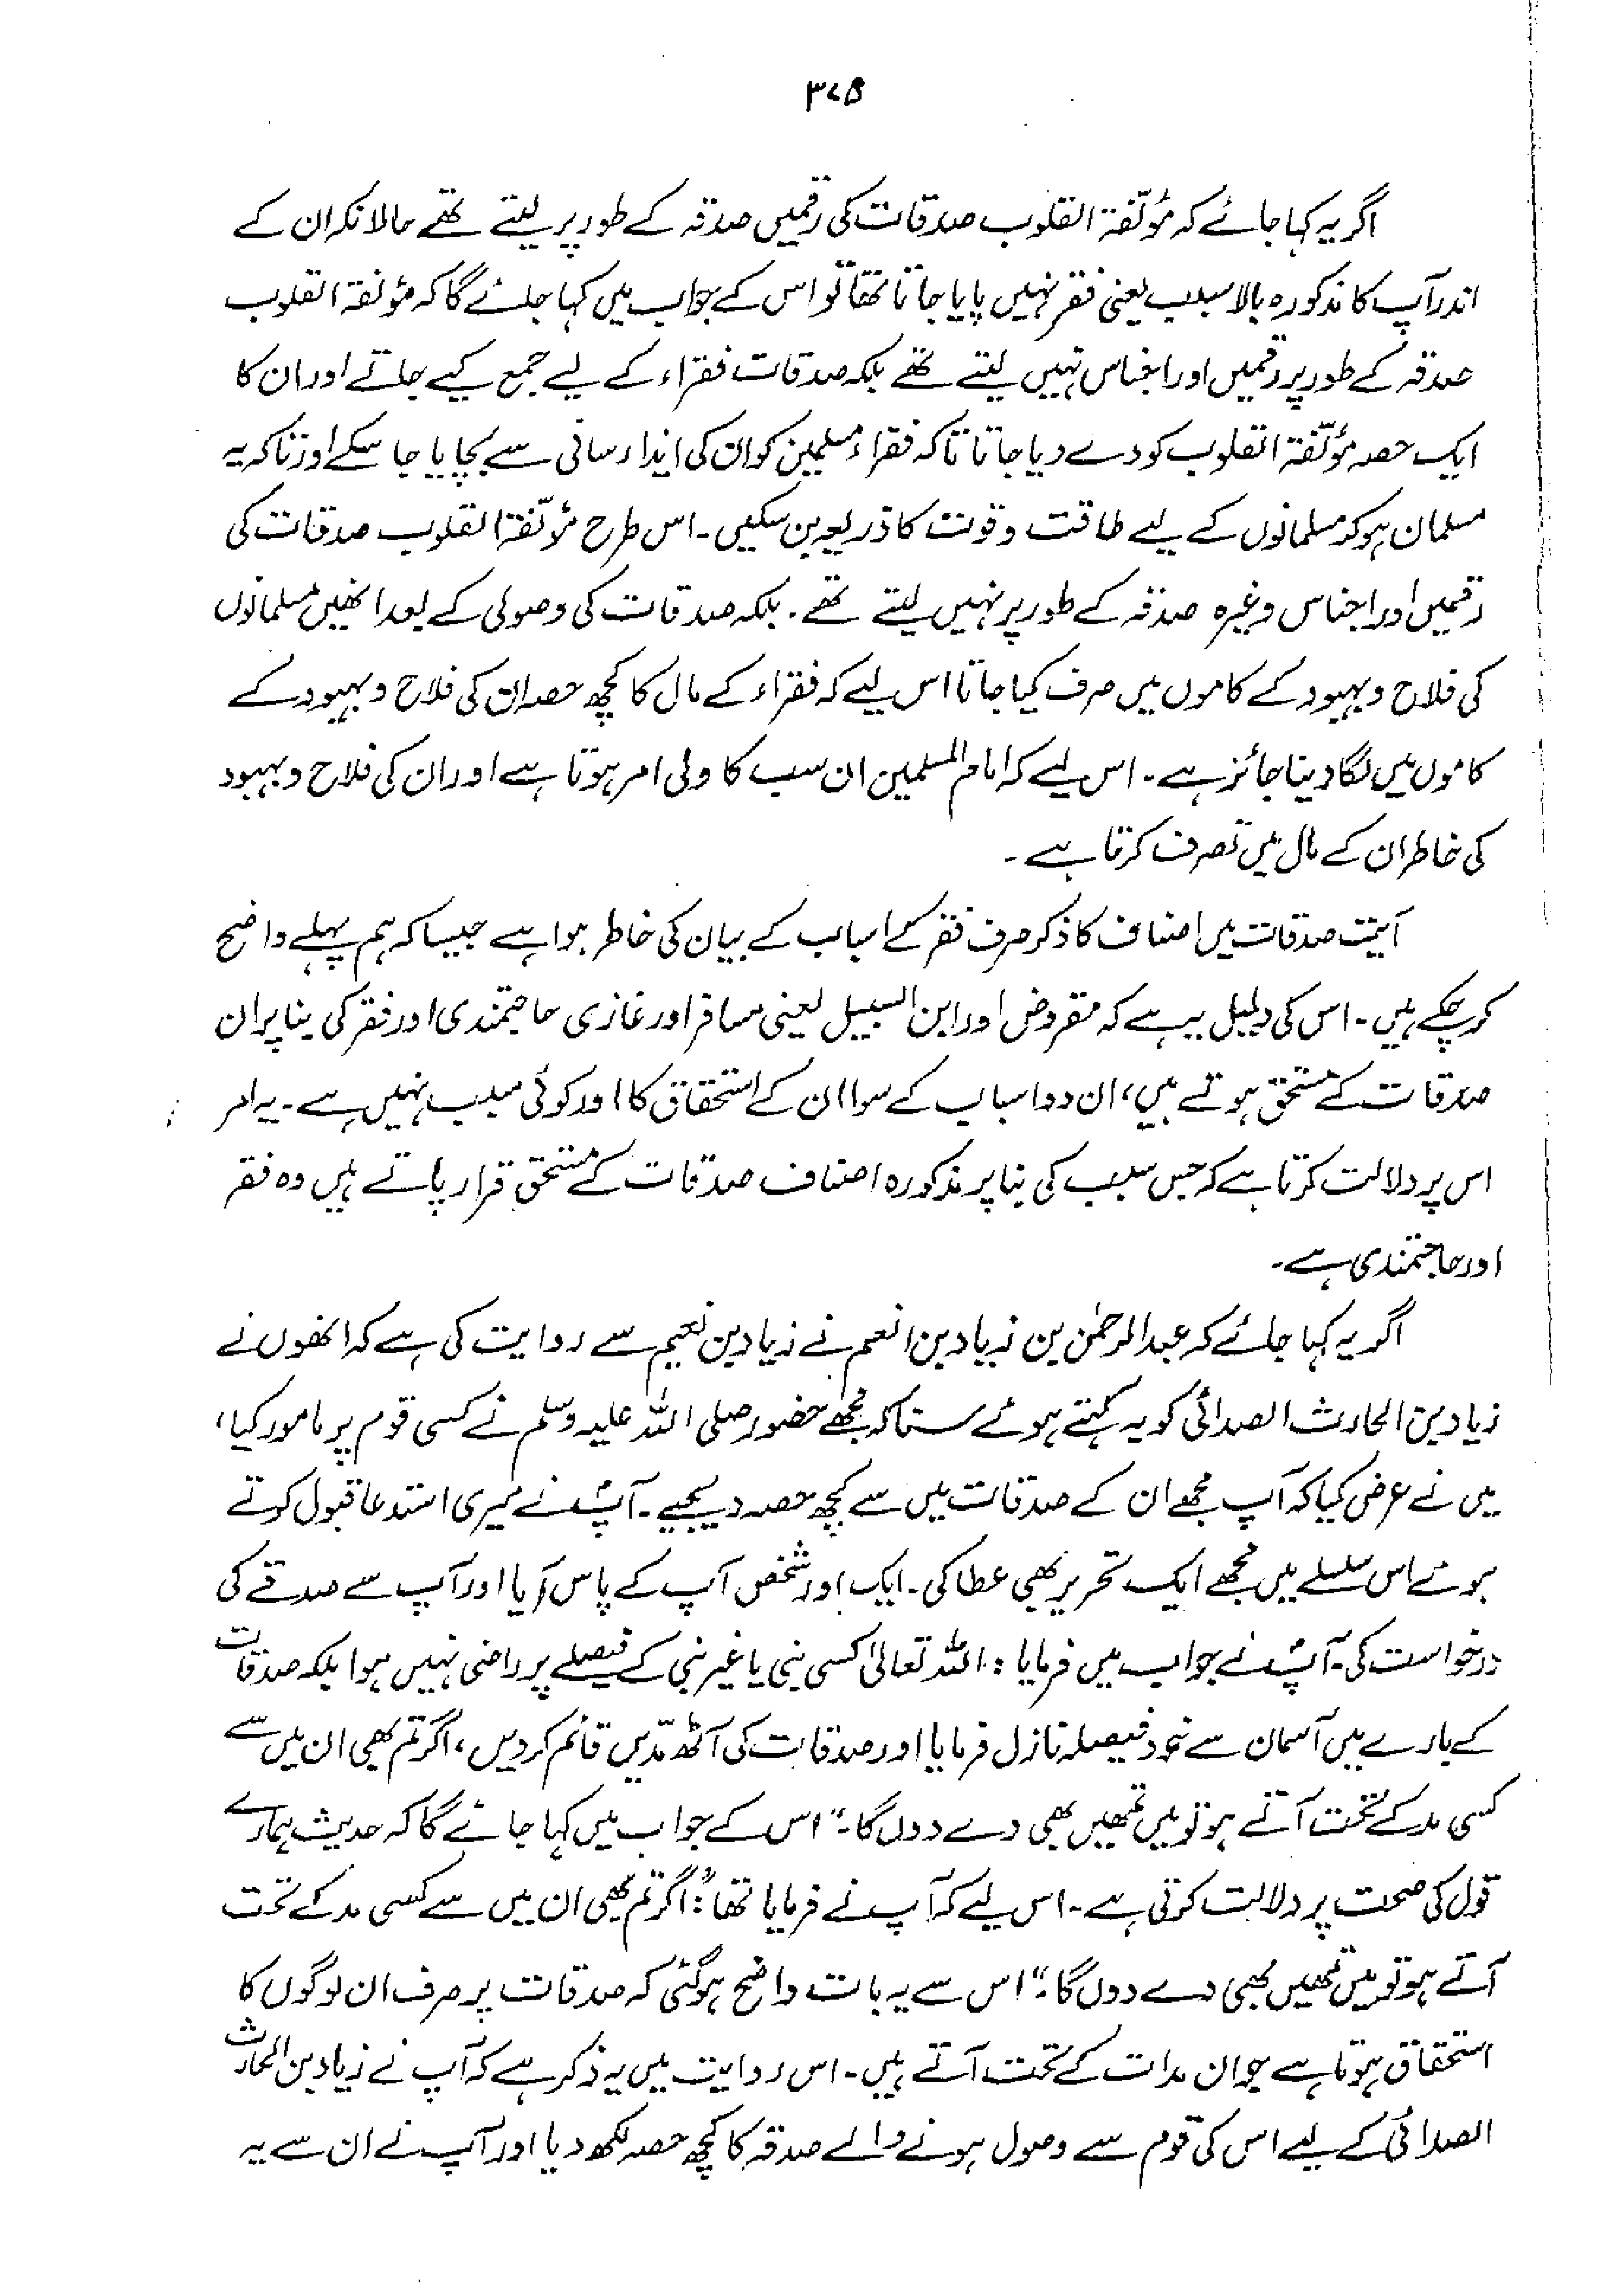 ۳۷۵
اگر یہ کہا جائے کہ مؤلّفۃ القلوب صدقات کی رقمیں صدقہ کے طور پر لیتے تھے حالانکہ ان کے
اندر آپ کا مذکورہ بالا سبب یعنی فقر نہیں پایا جاتا تھا تو اس کے جواب میں کہا جائے گا کہ مؤلفۃ القلوب
صدقہ کے طور پر رقمیں اور اجناس نہیں لیتے تھے بلکہ صدقات فقراء کے لیے جمع کیے جاتے اور ان کا
ایک حصہ مؤلّفۃ القلوب کو دے دیا جاتا تاکہ فقراء مسلمین کو ان کی ایذا رسانی سے بچایا جا سکے اور تاکہ یہ
مسلمان ہو کر مسلمانوں کے لیے طاقت و قوت کا ذریعہ بن سکیں۔ اس طرح مؤلّفۃ القلوب صدقات کی
رقمیں اور اجناس وغیرہ صدقہ کے طور پر نہیں لیتے تھے۔ بلکہ صدقات کی وصولی کے بعد انھیں مسلمانوں
کی فلاح و بہبود کے کاموں میں صرف کیا جاتا اس لیے کہ فقراء کے مال کا کچھ حصہ ان کی فلاح و بہبود کے
کاموں میں لگا دینا جائز ہے۔ اس لیے کہ امام المسلمین ان سب کا ولی امر ہوتا ہے اور ان کی فلاح و بہبود
کی خاطر ان کے مال میں تصرف کرتا ہے۔
آیت صدقات میں اصناف کا ذکر صرف فقر کے اسباب کے بیان کی خاطر ہوا ہے جیسا کہ ہم پہلے واضح
کر چکے ہیں۔ اس کی دلیل یہ ہے کہ مقروض اور ابن السبیل یعنی مسافر اور غازی حاجتمندی اور فقر کی بنا پر ان
صدقات کے مستحق ہوتے ہیں، ان دو اسباب کے سوا ان کے استحقاق کا اور کوئی سبب نہیں ہے۔ یہ امر
اس پر دلالت کرتا ہے کہ جس سبب کی بنا پر مذکورہ اصناف صدقات کے مستحق قرار پاتے ہیں وہ فقر
اور حاجتمندی ہے۔
اگر یہ کہا جائے کہ عبدالرحمٰن بن زیاد بن انعم نے زیاد بن نعیم سے روایت کی ہے کہ انھوں نے
زیاد بن الحارث الصدائی کو یہ کہتے ہوئے سنا کہ مجھے حضور صلی اللہ علیہ وسلم نے کسی قوم پر مامور کیا،
میں نے عرض کیا کہ آپ مجھے ان کے صدقات میں سے کچھ حصہ دیجیے۔ آپؐ نے میری استدعا قبول کرتے
ہوئے اس سلسلے میں مجھے ایک تحریر بھی عطا کی۔ ایک اور شخص آپ کے پاس آیا اور آپ سے صدقے کی
درخواست کی۔ آپؐ نے جواب میں فرمایا: اللہ تعالیٰ کسی نبی یا غیر نبی کے فیصلے پر راضی نہیں ہوا بلکہ صدقات
کے بارے میں آسمان سے خود فیصلہ نازل فرمایا اور صدقات کی آٹھ مدّیں قائم کر دیں، اگر تم بھی ان میں سے
کسی مد کے تحت آتے ہو تو میں تمھیں بھی دے دوں گا۔" اس کے جواب میں کہا جائے گا کہ حدیث ہمارے
قول کی صحت پر دلالت کرتی ہے۔ اس لیے کہ آپ نے فرمایا تھا: "اگر تم بھی ان میں سے کسی مد کے تحت
آتے ہو تو میں تمھیں بھی دے دوں گا۔" اس سے یہ بات واضح ہو گئی کہ صدقات پر صرف ان لوگوں کا
استحقاق ہوتا ہے جو ان مدات کے تحت آتے ہیں۔ اس روایت میں یہ ذکر ہے کہ آپ نے زیاد بن الحارث
الصدائی کے لیے اس کی قوم سے وصول ہونے والے صدقہ کا کچھ حصہ لکھ دیا اور آپ نے ان سے یہ